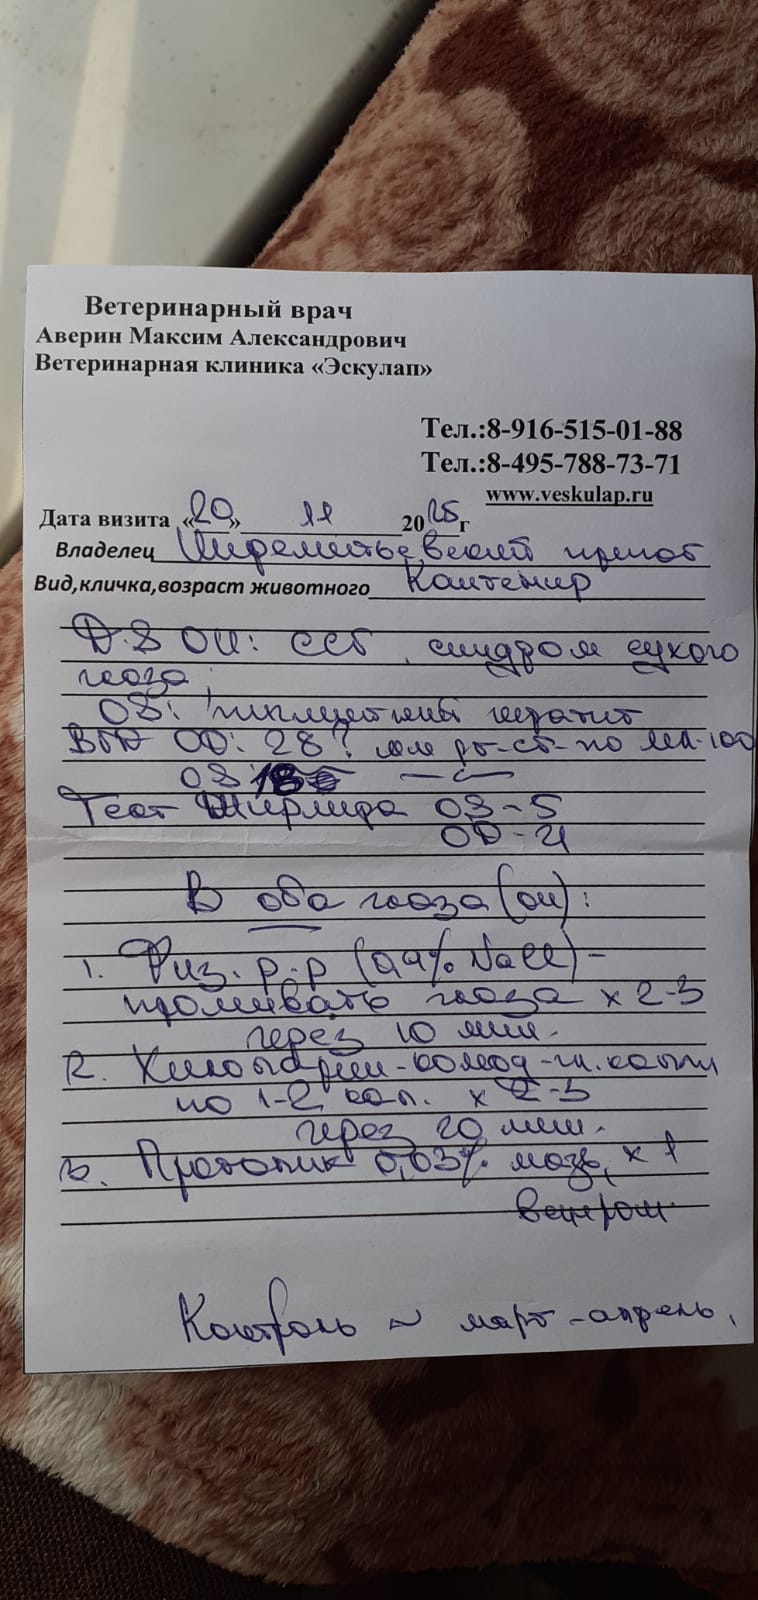 Ветеринарный врач
Аверин Максим Александрович
Ветеринарная клиника «Эскулап»
Тел.:8-916-515-01-88
Тел.:8-495-788-73-71
www.veskulap.ru
Дата визита «20» 11 2025г
Владелец приют
Вид,кличка,возраст животного Кантемир
D.S OU: ССГ, синдром сухого
глаза;
OS: пигментный кератит
ВГД OD: 28? мм рт-ст-по
OS 18
Тест Ширмера OS-5
OD-4
В оба глаза (OU):
1. Физ. р-р (0,9% NaCl) -
промывать глаза x 2-3
через 10 мин.
2. Хилопарин-комод-гл. капли
по 1-2 кап. x 2-3
через 20 мин.
3. Протопик 0,03% мазь, x 1
вечером
Контроль ~ март-апрель.